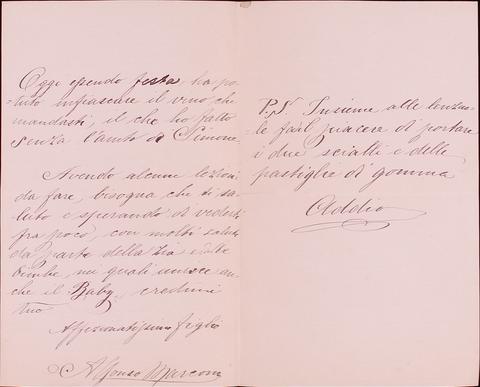 Oggi essendo festa ho po-
-tuto infiascare il vino che
mandasti, il che ho fatto
senza l'aiuto di Simone.
Avendo alcune lezioni
da fare, bisogna che ti sa-
luto e sperando di vederti
fra poco, con molti saluti
da parte della Zia e delle
bimbe, nei quali unisce an-
che il Baby, credimi
tuo
Affezionatissimo figlio
Alfonso Marconi
P.S. Insieme alle lenzuo-
-le fai il piacere di portare
i due scialli e delle
pastiglie di gomma
Addio